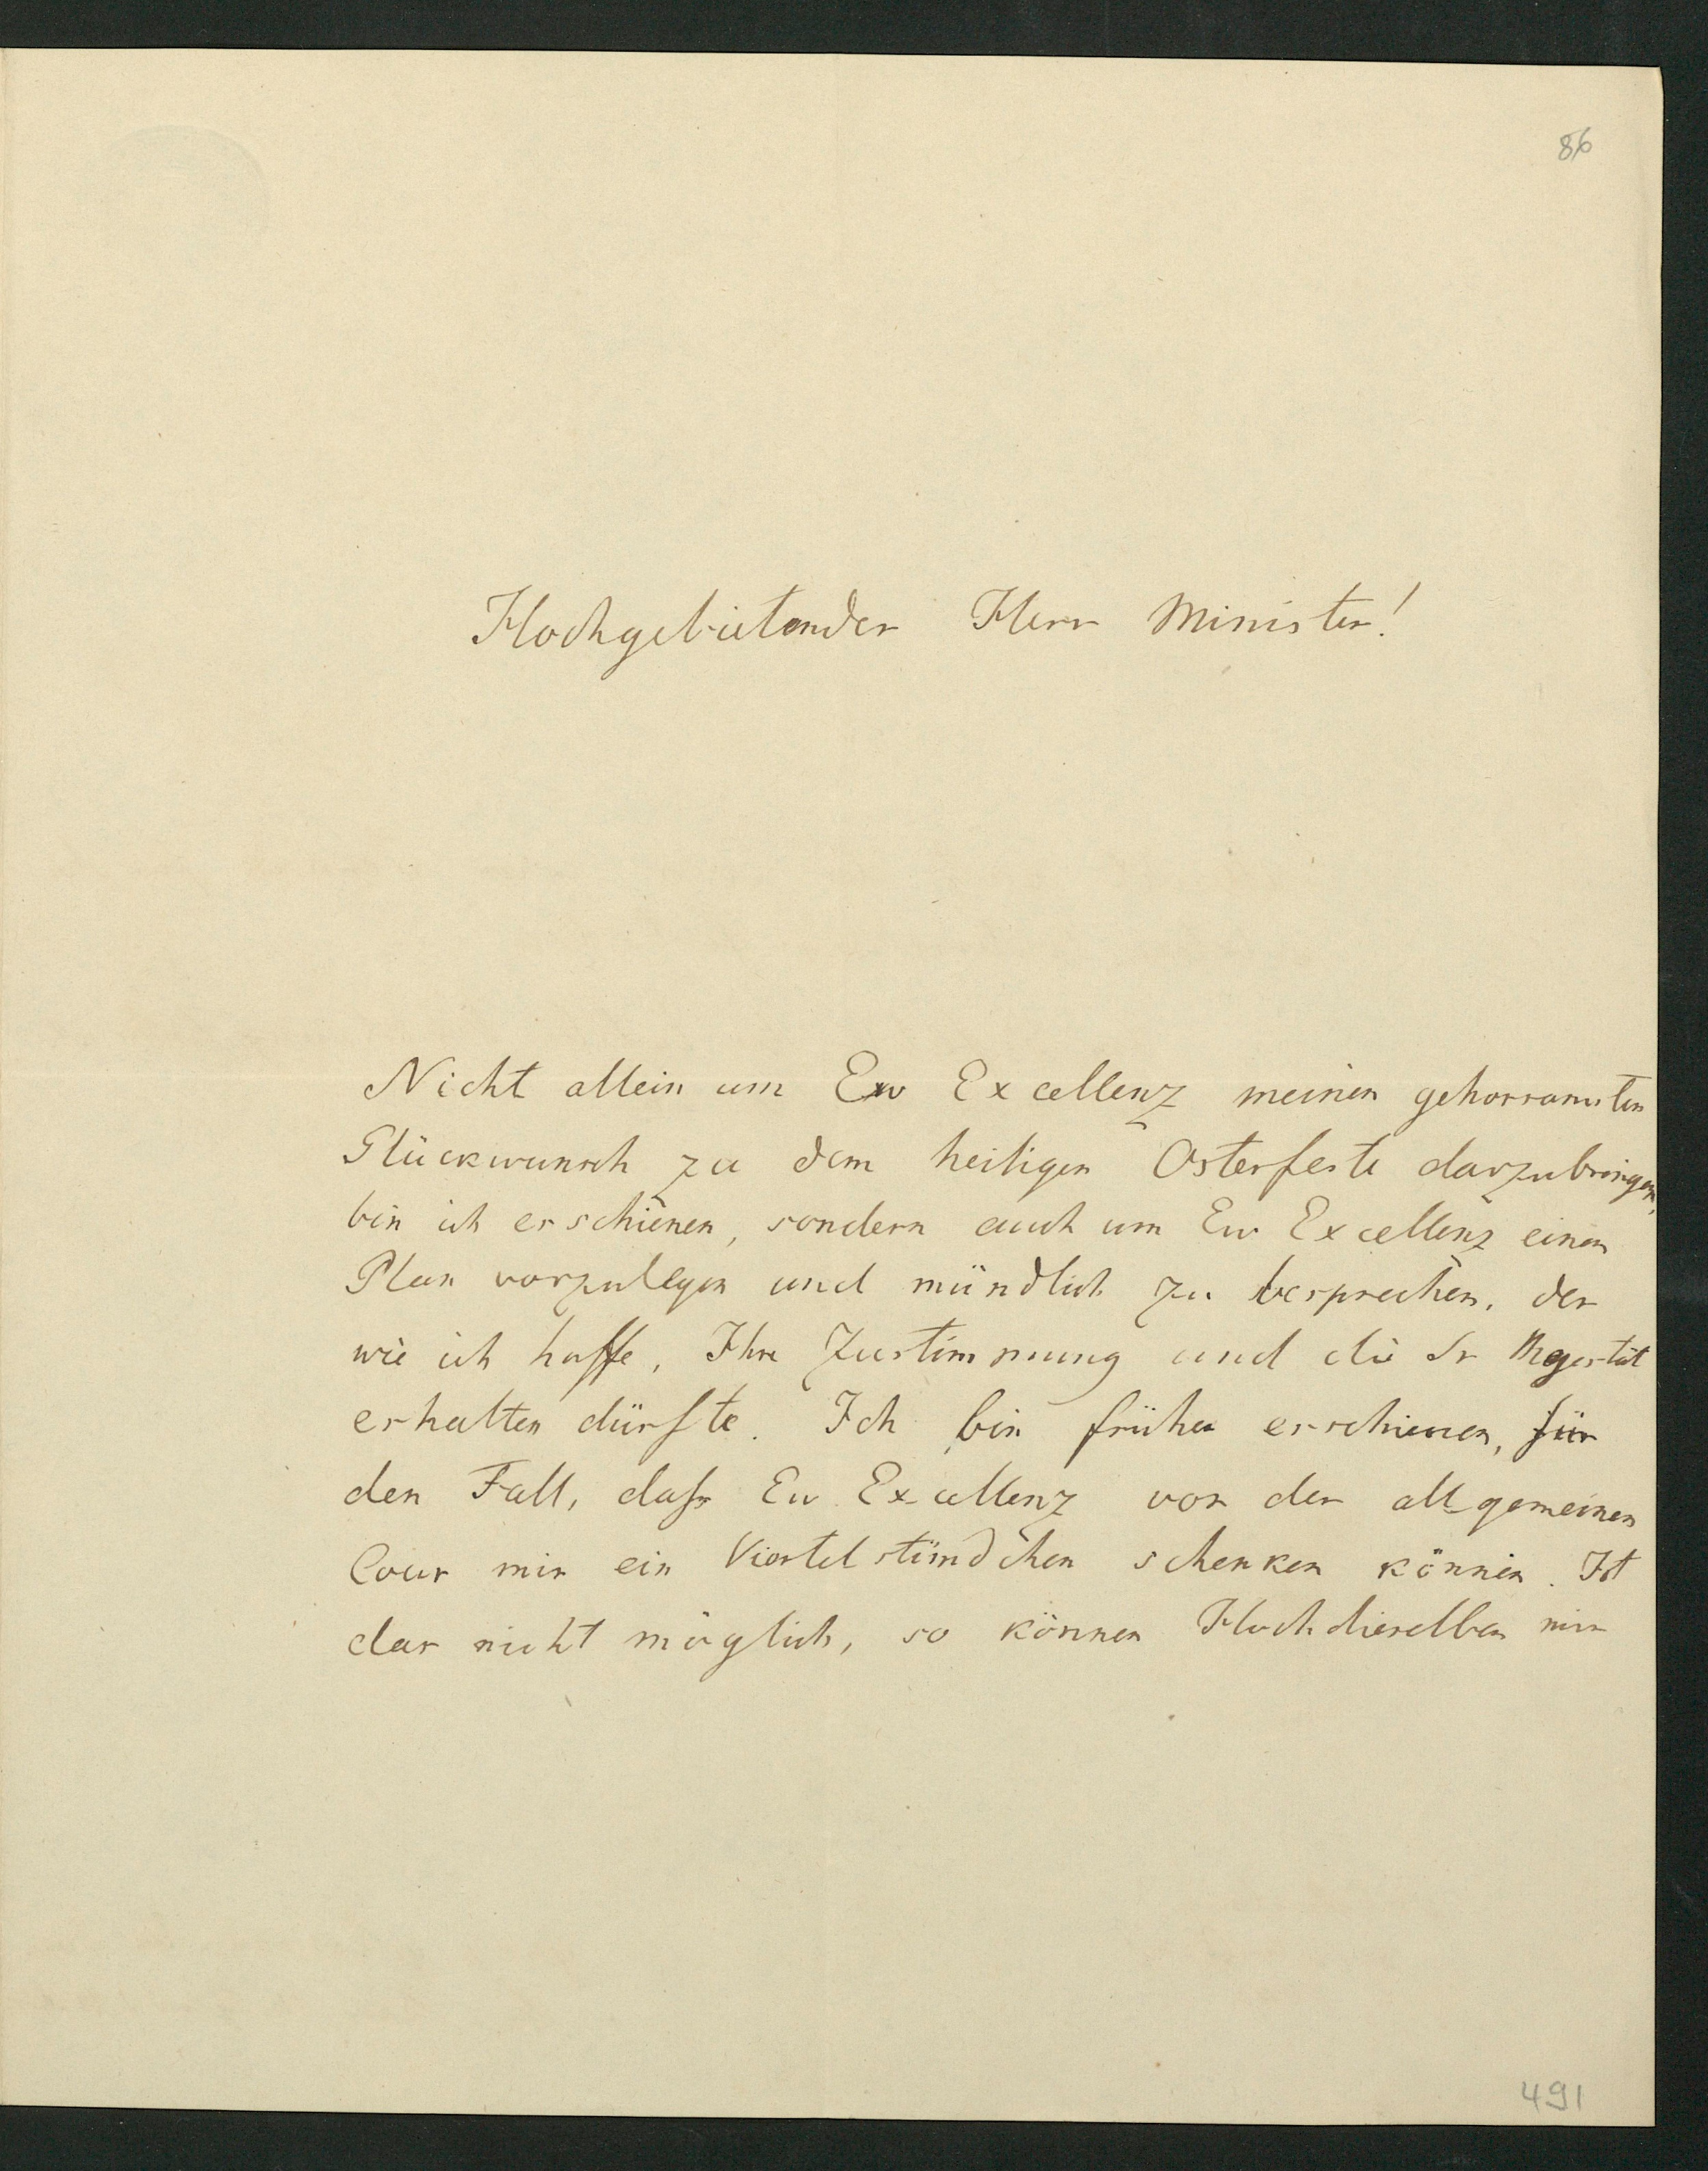 86
Hochgebietender Herr Minister!
Nicht allein um Ew Excellenz meinen gehorsamsten
Glückwunsch zu dem heiligen Osterfeste darzubringen,
bin ich erschienen, sondern auch um Ew Excellenz einen
Plan vorzulegen und mündlich zu besprechen, der
wie ich hoffe, Ihre Zustimmung und die Sr Majestät
erhalten dürfte. Ich bin früher erschienen, für
den Fall, daß Ew Excellenz vor der allgemeinen
Cour mir ein Viertelstündchen schenken können. Ist
das nicht möglich, so können Hochdieselben mir
491